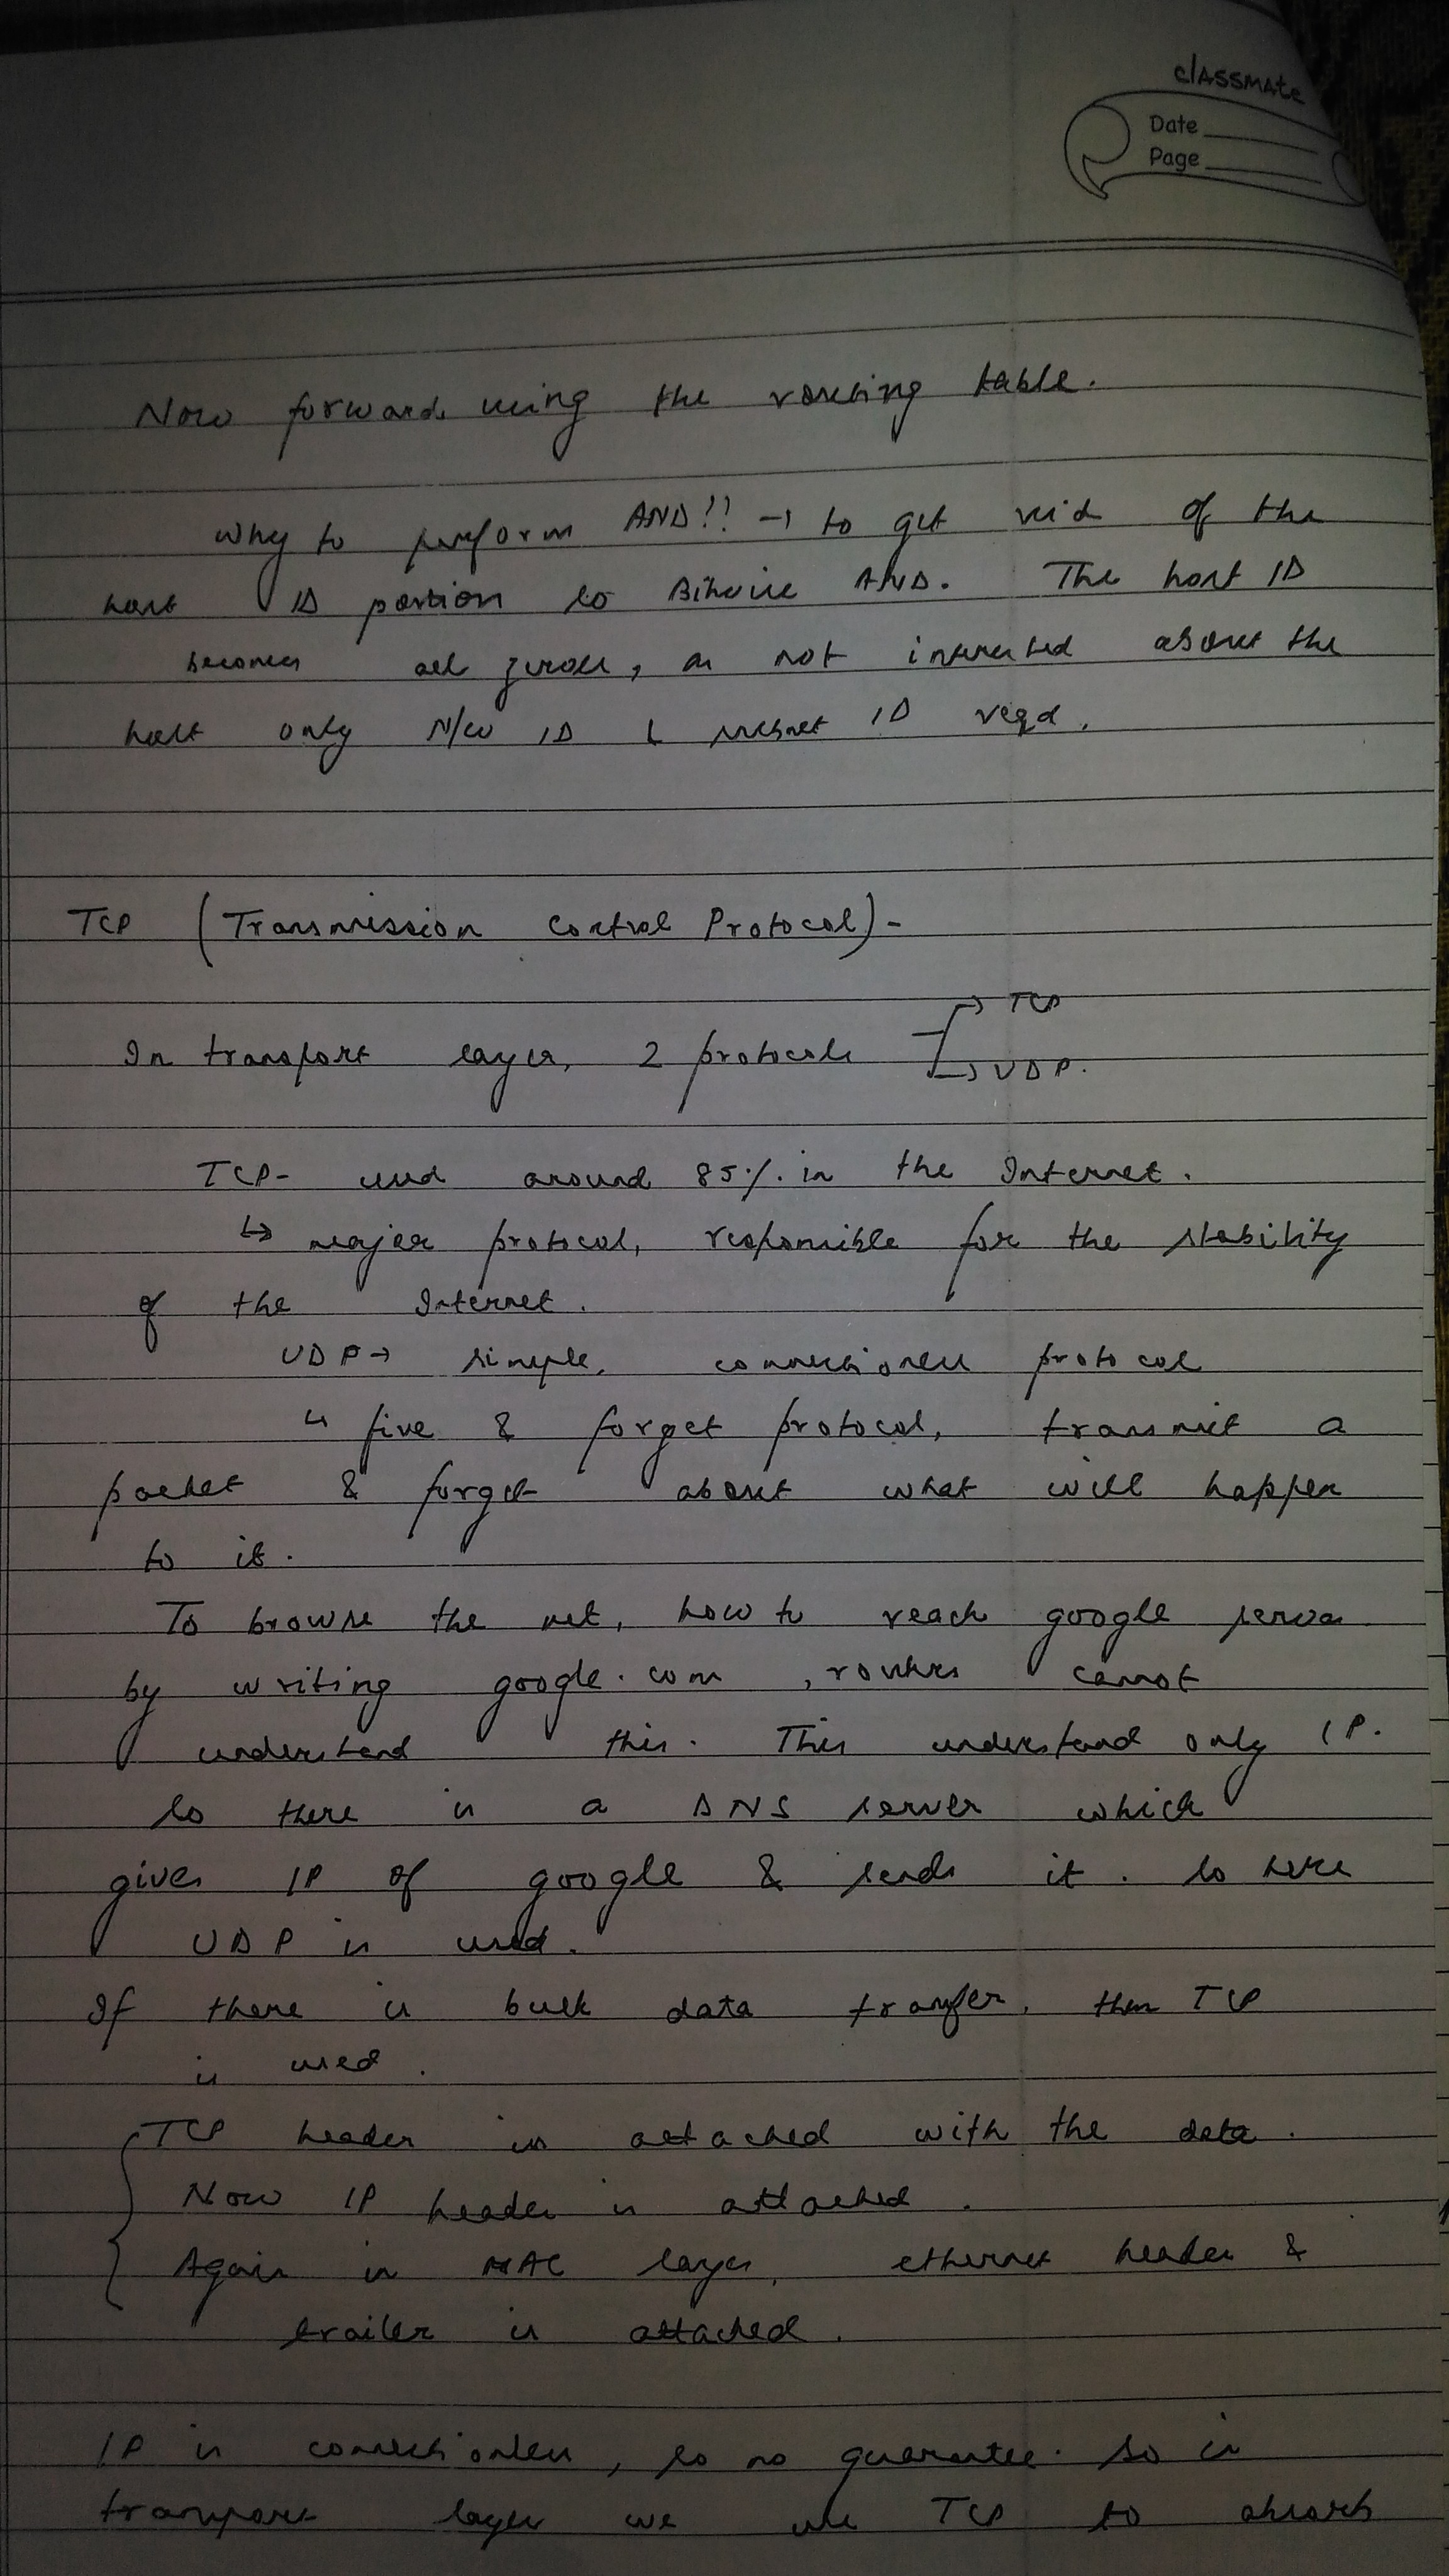 classmate
Date
Page
Now forward using the routing table.
Why to perform AND!! → to get rid of the
host ID portion so Bitwise AND. The host ID
becomes all zeroes, as not interested about the
host only N/W ID & subnet ID reqd.
TCP (Transmission Control Protocol) -
In transport layer, 2 protocols → TCP
→ UDP.
TCP - used around 85% in the Internet.
↳ major protocol, responsible for the stability
of the Internet.
UDP → simple, connectionless protocol
↳ fire & forget protocol, transmit a
packet & forget about what will happen
to it.
To browse the net, how to reach google server
by writing google.com, routers cannot
understand this. This understand only IP.
So there is a DNS server which
gives IP of google & sends it. So here
UDP is used.
If there is bulk data transfer, then TCP
is used.
TCP header is attached with the data.
Now IP header is attached.
Again in MAC layer, ethernet header &
trailer is attached.
IP is connectionless, so no guarantee. So in
transport layer we use TCP to absorb